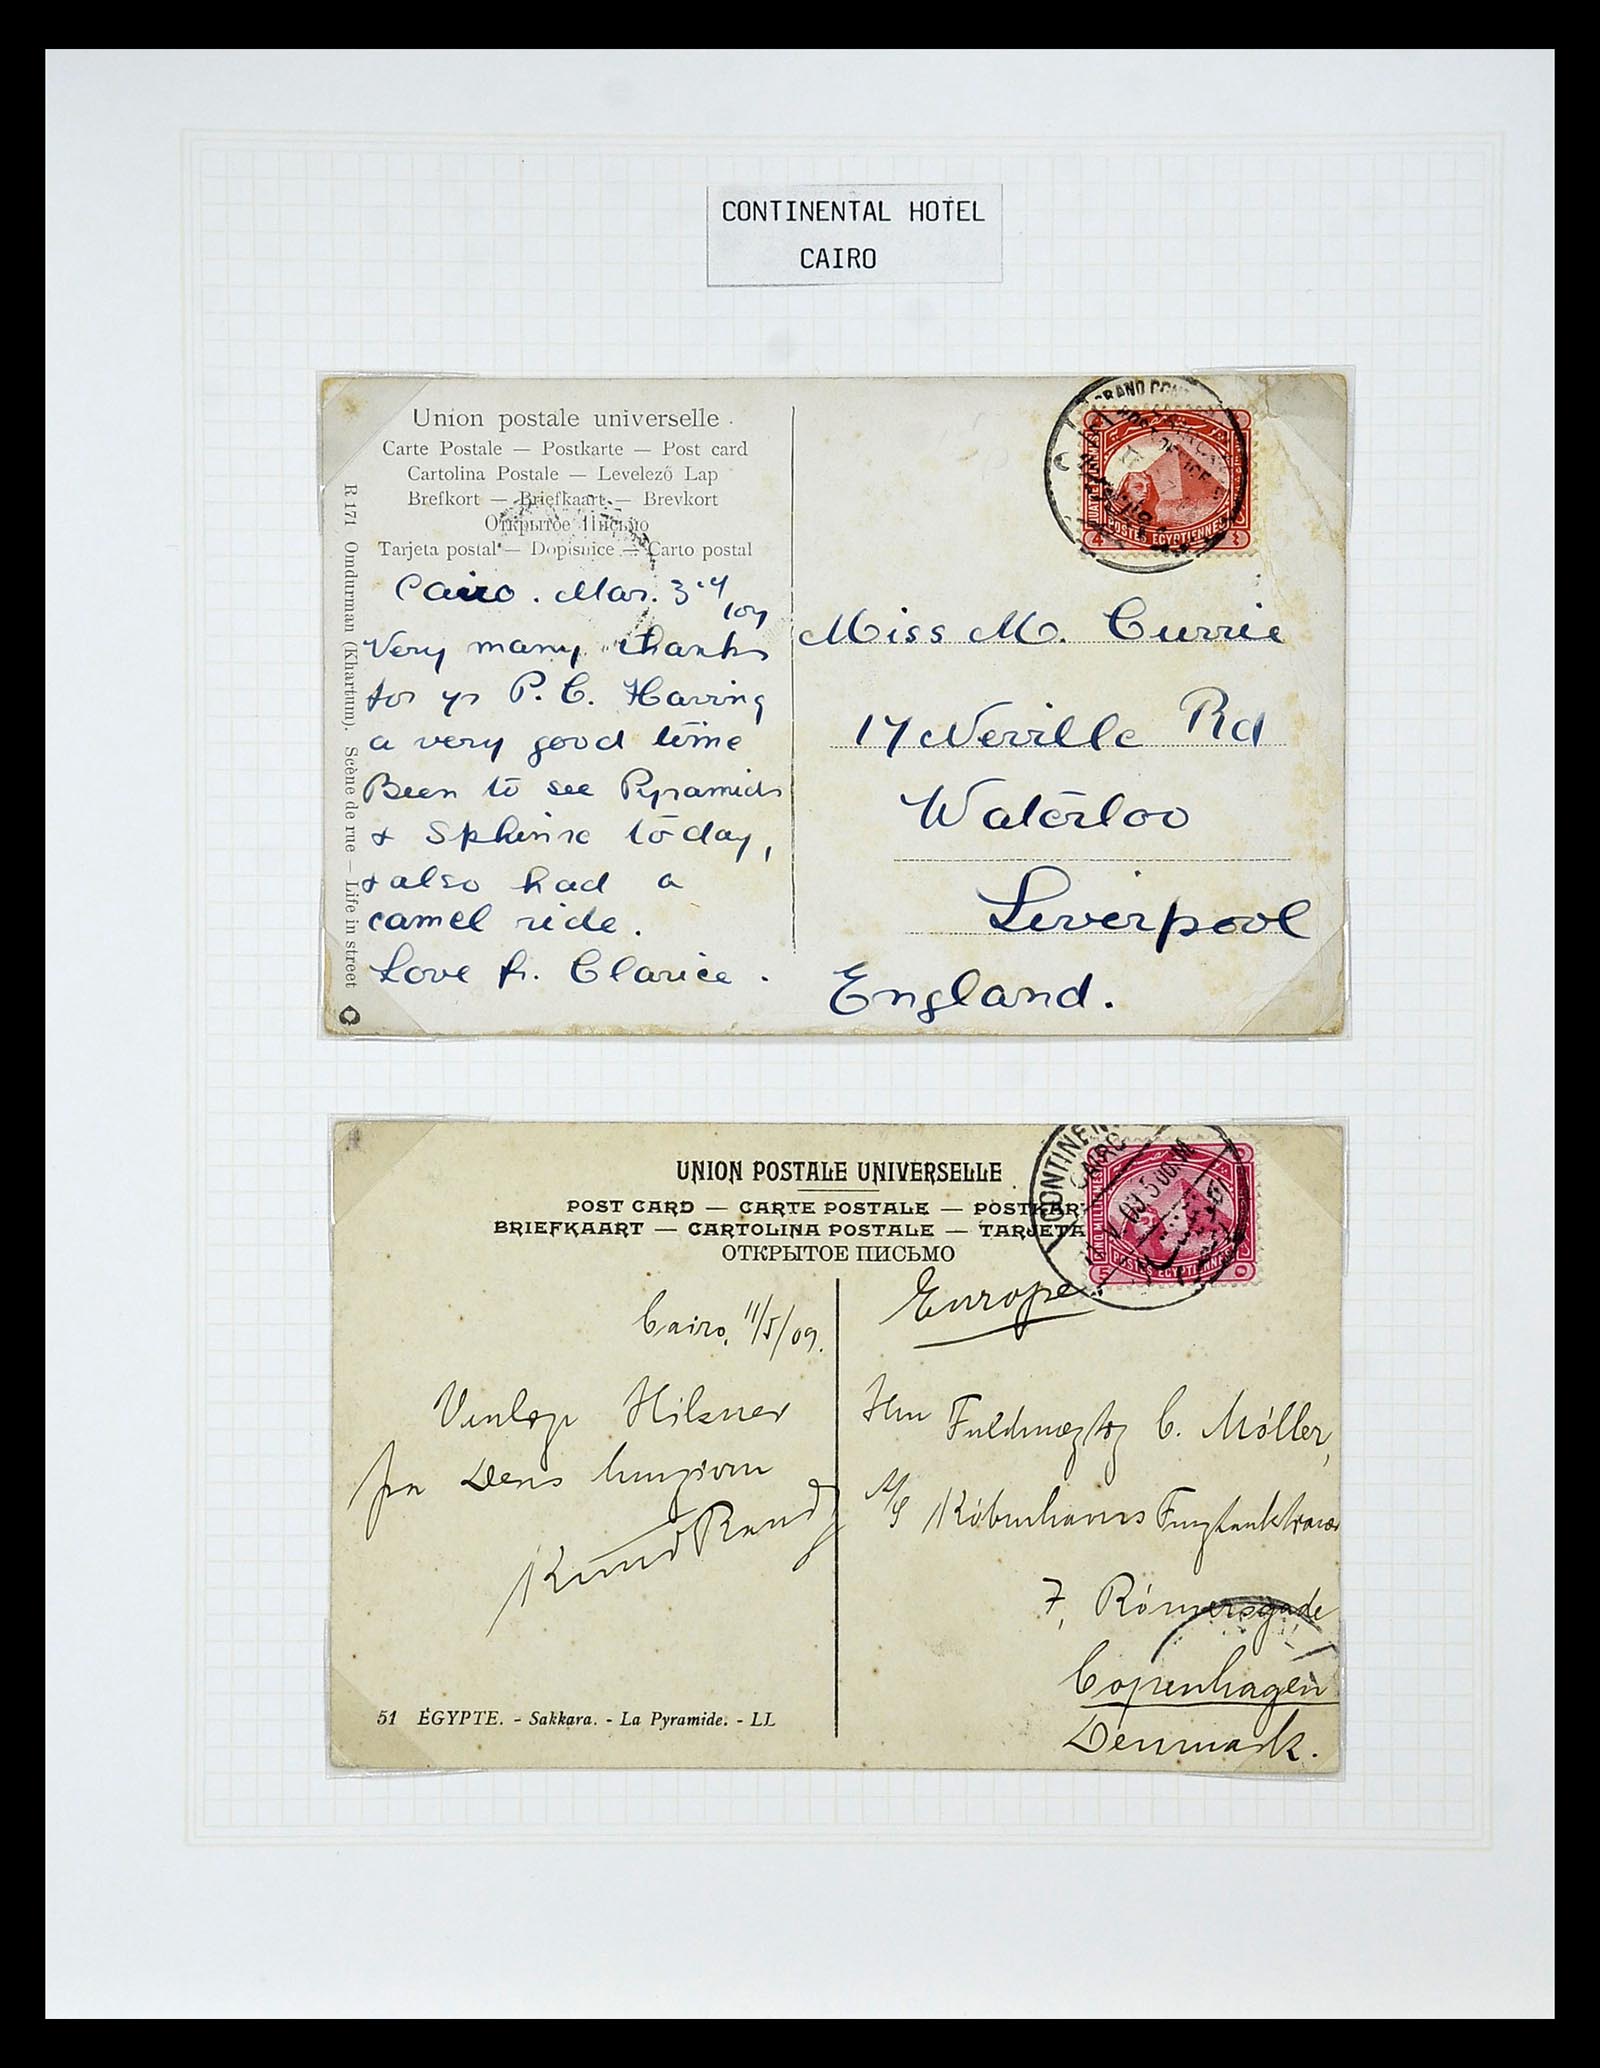 CONTINENTAL HOTEL
CAIRO
Union postale universelle.
Carte Postale — Postkarte — Post card
Cartolina Postale — Levelező Lap
Brefkort — Briefkaart — Brevkort
Открытое Письмо
Tarjeta postal — Dopisnice — Carto postal
R.171 Omdurman (Khartum). Scène de rue — Life in street
Cairo. Mar. 3rd
/09
Very many thanks
for yr P.C. Having
a very good time
Been to see Pyramids
& Sphinx today,
& also had a
camel ride.
Love fr. Clarice.
GRAND CONT
POSTES EGYPTIENNES
4
Miss M. Currie
17 Neville Rd
Waterloo
Liverpool
England.
UNION POSTALE UNIVERSELLE
POST CARD — CARTE POSTALE — POSTKAR
BRIEFKAART — CARTOLINA POSTALE — TARJETA
ОТКРЫТОЕ ПИСЬМО
CONTINEN
CAIRO
09 5 00 M
CINQ MILLIEMES
POSTES EGYPTIENNES
5
Europe.
Cairo, 11/5/09.
Venlige Hilsner
fra Deres hengivne
Knud
Hrn Fuldmægtig C. Möller,
Köbenhavns
7, Römersgade
Copenhagen
Denmark.
51 ÉGYPTE. - Sakkara. - La Pyramide. - LL